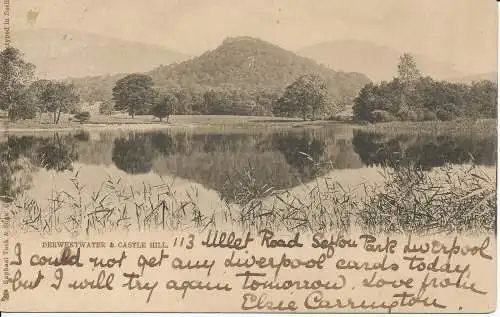 DERWENTWATER & CASTLE HILL.
113 Ullet Road Sefton Park Liverpool
I could not get any Liverpool cards today,
but I will try again tomorrow. Love from
Elsie Carrington
Raphael Tuck &
typed in Berlin